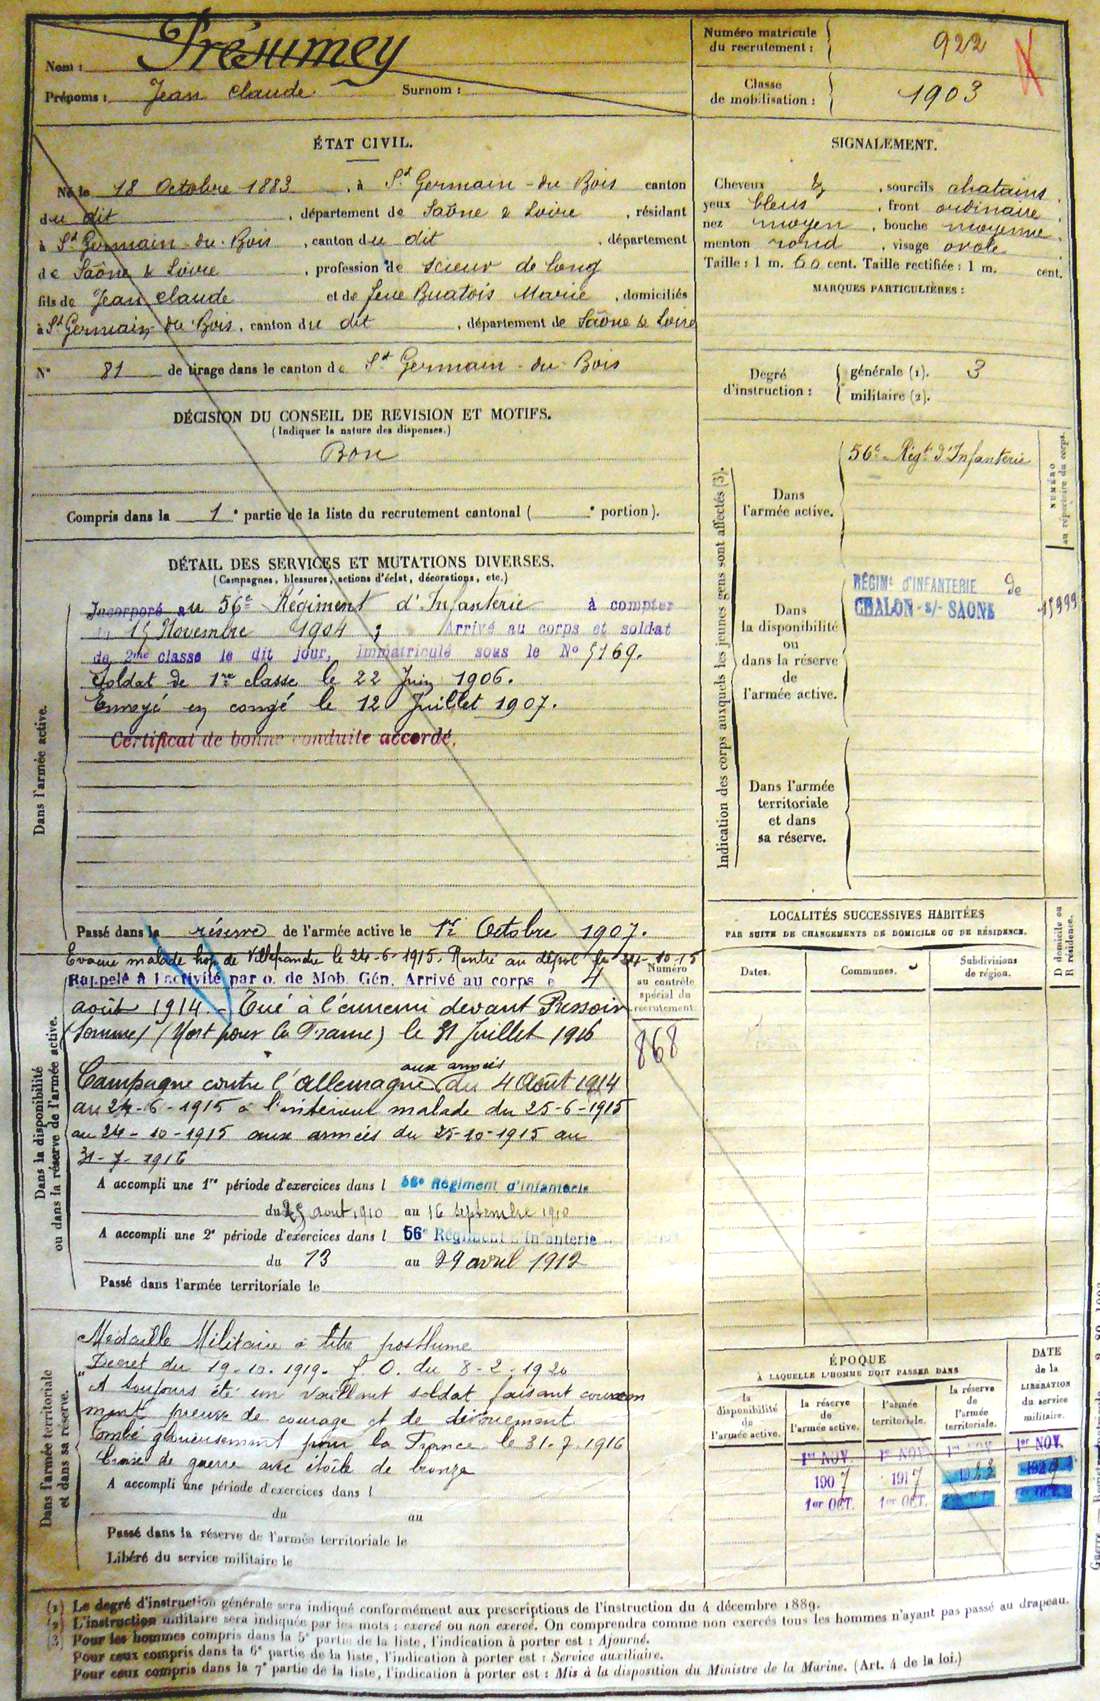 Nom : Présumey
Prénoms : Jean Claude. Surnom :
Numéro matricule du recrutement : 922
Classe de mobilisation : 1903
ÉTAT CIVIL.
Né le 18 Octobre 1883, à St Germain-du-Bois canton
du dit, département de Saône & Loire, résidant
à St Germain-du-Bois, canton du dit, département
de Saône & Loire, profession de scieur de long
fils de Jean Claude et de feue Buatois Marie, domiciliés
à St Germain du Bois, canton du dit, département de Saône & Loire
N° 81 de tirage dans le canton de St Germain-du-Bois
SIGNALEMENT.
Cheveux &, sourcils chatains.
yeux bleus, front ordinaire,
nez moyen, bouche moyenne,
menton rond, visage ovale.
Taille : 1 m. 60 cent. Taille rectifiée : 1 m. cent.
MARQUES PARTICULIÈRES :
Degré d'instruction : générale (1). 3
militaire (2).
DÉCISION DU CONSEIL DE REVISION ET MOTIFS.
(Indiquer la nature des dispenses.)
Bon
Compris dans la 1e partie de la liste du recrutement cantonal ( e portion).
DÉTAIL DES SERVICES ET MUTATIONS DIVERSES.
(Campagnes, blessures, actions d'éclat, décorations, etc.)
Dans l'armée active.
Incorporé au 56e Régiment d'Infanterie à compter
du 15 Novembre 1904 ; Arrivé au corps et soldat
de 2me classe le dit jour, immatriculé sous le No 5169.
Soldat de 1re classe le 22 Juin 1906.
Envoyé en congé le 12 Juillet 1907.
Certificat de bonne conduite accordé.
Passé dans la réserve de l'armée active le 1er Octobre 1907.
Dans la disponibilité
ou dans la réserve de l'armée active.
Evacué malade hop de Villefranche le 24-6-1915. Rentré au dépôt le 24-10-15
Rappelé à l'activité par o. de Mob. Gén. Arrivé au corps le 4
août 1914. - Tué à l'ennemi devant Pressoir
(Somme) (Mort pour la France) le 31 Juillet 1916
Campagne contre l'allemagne aux armées du 4 Août 1914
au 24-6-1915 à l'intérieur malade du 25-6-1915
au 24-10-1915 aux armées du 25-10-1915 au
31-7-1916
Numéro au contrôle spécial du recrutement.
868
A accompli une 1re période d'exercices dans l 56e Régiment d'Infanterie
du 25 aout 1910 au 16 septembre 1910
A accompli une 2e période d'exercices dans l 56e Régiment d'Infanterie
du 13 au 29 avril 1912
Passé dans l'armée territoriale le
Dans l'armée territoriale
et dans sa réserve.
Médaille Militaire à titre posthume
Décret du 19-10-1919. J. O. du 8-2-1920
"A toujours été un vaillant soldat faisant constam
ment preuve de courage et de dévouement
Tombé glorieusement pour la France le 31-7-1916
Croix de guerre avec étoile de bronze
A accompli une période d'exercices dans l
du au
Passé dans la réserve de l'armée territoriale le
Libéré du service militaire le
Indication des corps auxquels les jeunes gens sont affectés (3).
NUMÉRO au répertoire du corps.
Dans l'armée active.
56e Régt d'Infanterie
Dans la disponibilité ou dans la réserve de l'armée active.
RÉGIMt D'INFANTERIE de
CHALON-s/-SAONE
Dans l'armée territoriale et dans sa réserve.
LOCALITÉS SUCCESSIVES HABITÉES
PAR SUITE DE CHANGEMENTS DE DOMICILE OU DE RÉSIDENCE.
Dates. Communes. Subdivisions de région. D domicile ou R résidence.
ÉPOQUE
À LAQUELLE L'HOMME DOIT PASSER DANS
la disponibilité de l'armée active.
la réserve de l'armée active.
l'armée territoriale.
la réserve de l'armée territoriale.
DATE de la LIBÉRATION du service militaire.
1er NOV. 1er NOV. 1er NOV. 1er NOV.
1907 1917
1er OCT. 1er OCT.
(1) Le degré d'instruction générale sera indiqué conformément aux prescriptions de l'instruction du 4 décembre 1889.
(2) L'instruction militaire sera indiquée par les mots : exercé ou non exercé. On comprendra comme non exercés tous les hommes n'ayant pas passé au drapeau.
(3) Pour les hommes compris dans la 5e partie de la liste, l'indication à porter est : Ajourné.
Pour ceux compris dans la 6e partie de la liste, l'indication à porter est : Service auxiliaire.
Pour ceux compris dans la 7e partie de la liste, l'indication à porter est : Mis à la disposition du Ministre de la Marine. (Art. 4 de la loi.)